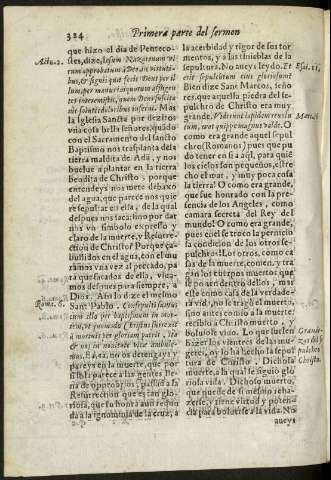 324
Primera parte del sermon
que hizo el dia de Penteco-
stes, dize, Iesum Nazarenum vi-
rum approbatum à Deo
& siguis que fecit Deus per il-
lum, per manus iniquorum affligen-
tes interemistis, quem Deus suscita
uit solutis doloribus inferni. Mas
la Iglesia Sancta por deziros
vna cosa bella señores, quãdo
con el Sacramento del sancto
Baptismo nos trasplanta de la
tierra maldita de Adã, y nos
buelue a plantar en la tierra
bendita de Christo, porque
entendeys nos mete debaxo
del agua, que parece nos quie
re sepultar en ella, de la qual
despues nos saca: sino por dar
nos vn simbolo expresso y
claro de la muerte, y Resurre-
ction de Christo? Porque ca-
bullidos en el agua, con el mu
ramos vna vez al pecado, pa
ra que sacados de ella, viua-
mos despues para siempre, a
Dios. Assi lo dize el mesmo
Sant Pablo. Consepulti sumus
cum illo per baptismum in mor-
tem, vt quomodo Christus surrexit
à mortuis per gloriam patris, ita
& nos in nouitate vitæ ambule-
mus. Ea, ea, no os detengays y
pareys en la muerte, que por
si sola parece a las gentes lle-
na de oprobrios, passad a la
Resurrection que es tan glo-
riosa, que su honra aun respon
da a la ignominia de la cruz, a
la acerbidad y rigor de sus tor
mentos, y a las tinieblas de la
sepultura. No aueys leydo. Et
erit sepulchrum eius gloriosum?
Bien dize Sant Marcos, seño
res, que aquella piedra del se-
pulchro de Christo era muy
grande. Viderunt lapidem reuolu
tum, erat quippe magnus valde. O
como era grande aquel sepul
chro (Romanos) pues que pu
do tener en si a aq̃l, para quiẽ
los cielos son pequeños, estre
cho el mar, y muy poca cosa
la tierra? O como era grande,
que fue honrado con la pre-
sencia de los Angeles, como
camara secreta del Rey del
mundo! O como era grande,
pues en el se troco la peruicio
sa condicion de los otros se-
pulchros: Los otros, como ca
sa de la muerte, comen, y tra
gan los cuerpos muertos que
se ponen dentro dellos, mas
este como casa de la verdade-
ra vida, no se trago el muerto,
sino antes comio a la muerte:
recibiolo Christo muerto, y
boluiole viuo. Lo que suelen
hazer los vientres de las mu-
geres, oy lo ha hecho la sepul
tura de Christo. Dichosa
muerte, a la qual se siguio glo
riosa vida. Dichoso muerto,
que puede de si mesmo reha-
zerse, y tiene virtud y poten-
cia para boluerse a la vida. No
aueys
Actu. 2.
Rome. 6.
Esai. 11.
Marc.
Grande-
zas del se-
pulchro
Christo.